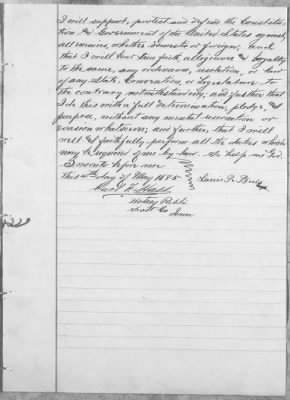 I will support, protect and defend the Constitu-
tion & Government of the United States against
all enemies, whether domestic or foreign; and
that I will bear true faith, allegiance & loyalty
to the same, any ordinance, resolution, or law
of any State, Convention, or Legislature to
the contrary notwithstanding; and further that
I do this with a full determination, pledge &
purpose, without any mental reservation or
evasion whatsoever; and further, that I will
well & faithfully perform all the duties which
may be required of me by law. So help me God.
Sworn to before me
This day of May 1885
Louis P.
Notary Public
Scott Co Iowa